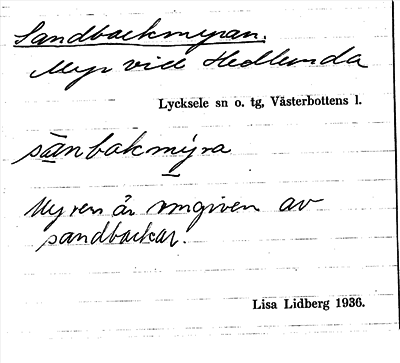 Sandbackmyran.
Myr vid Hedlunda
Lycksele sn o. tg, Västerbottens l.
sanbakmyra
Myren är omgiven av
sandbackar.
Lisa Lidberg 1936.